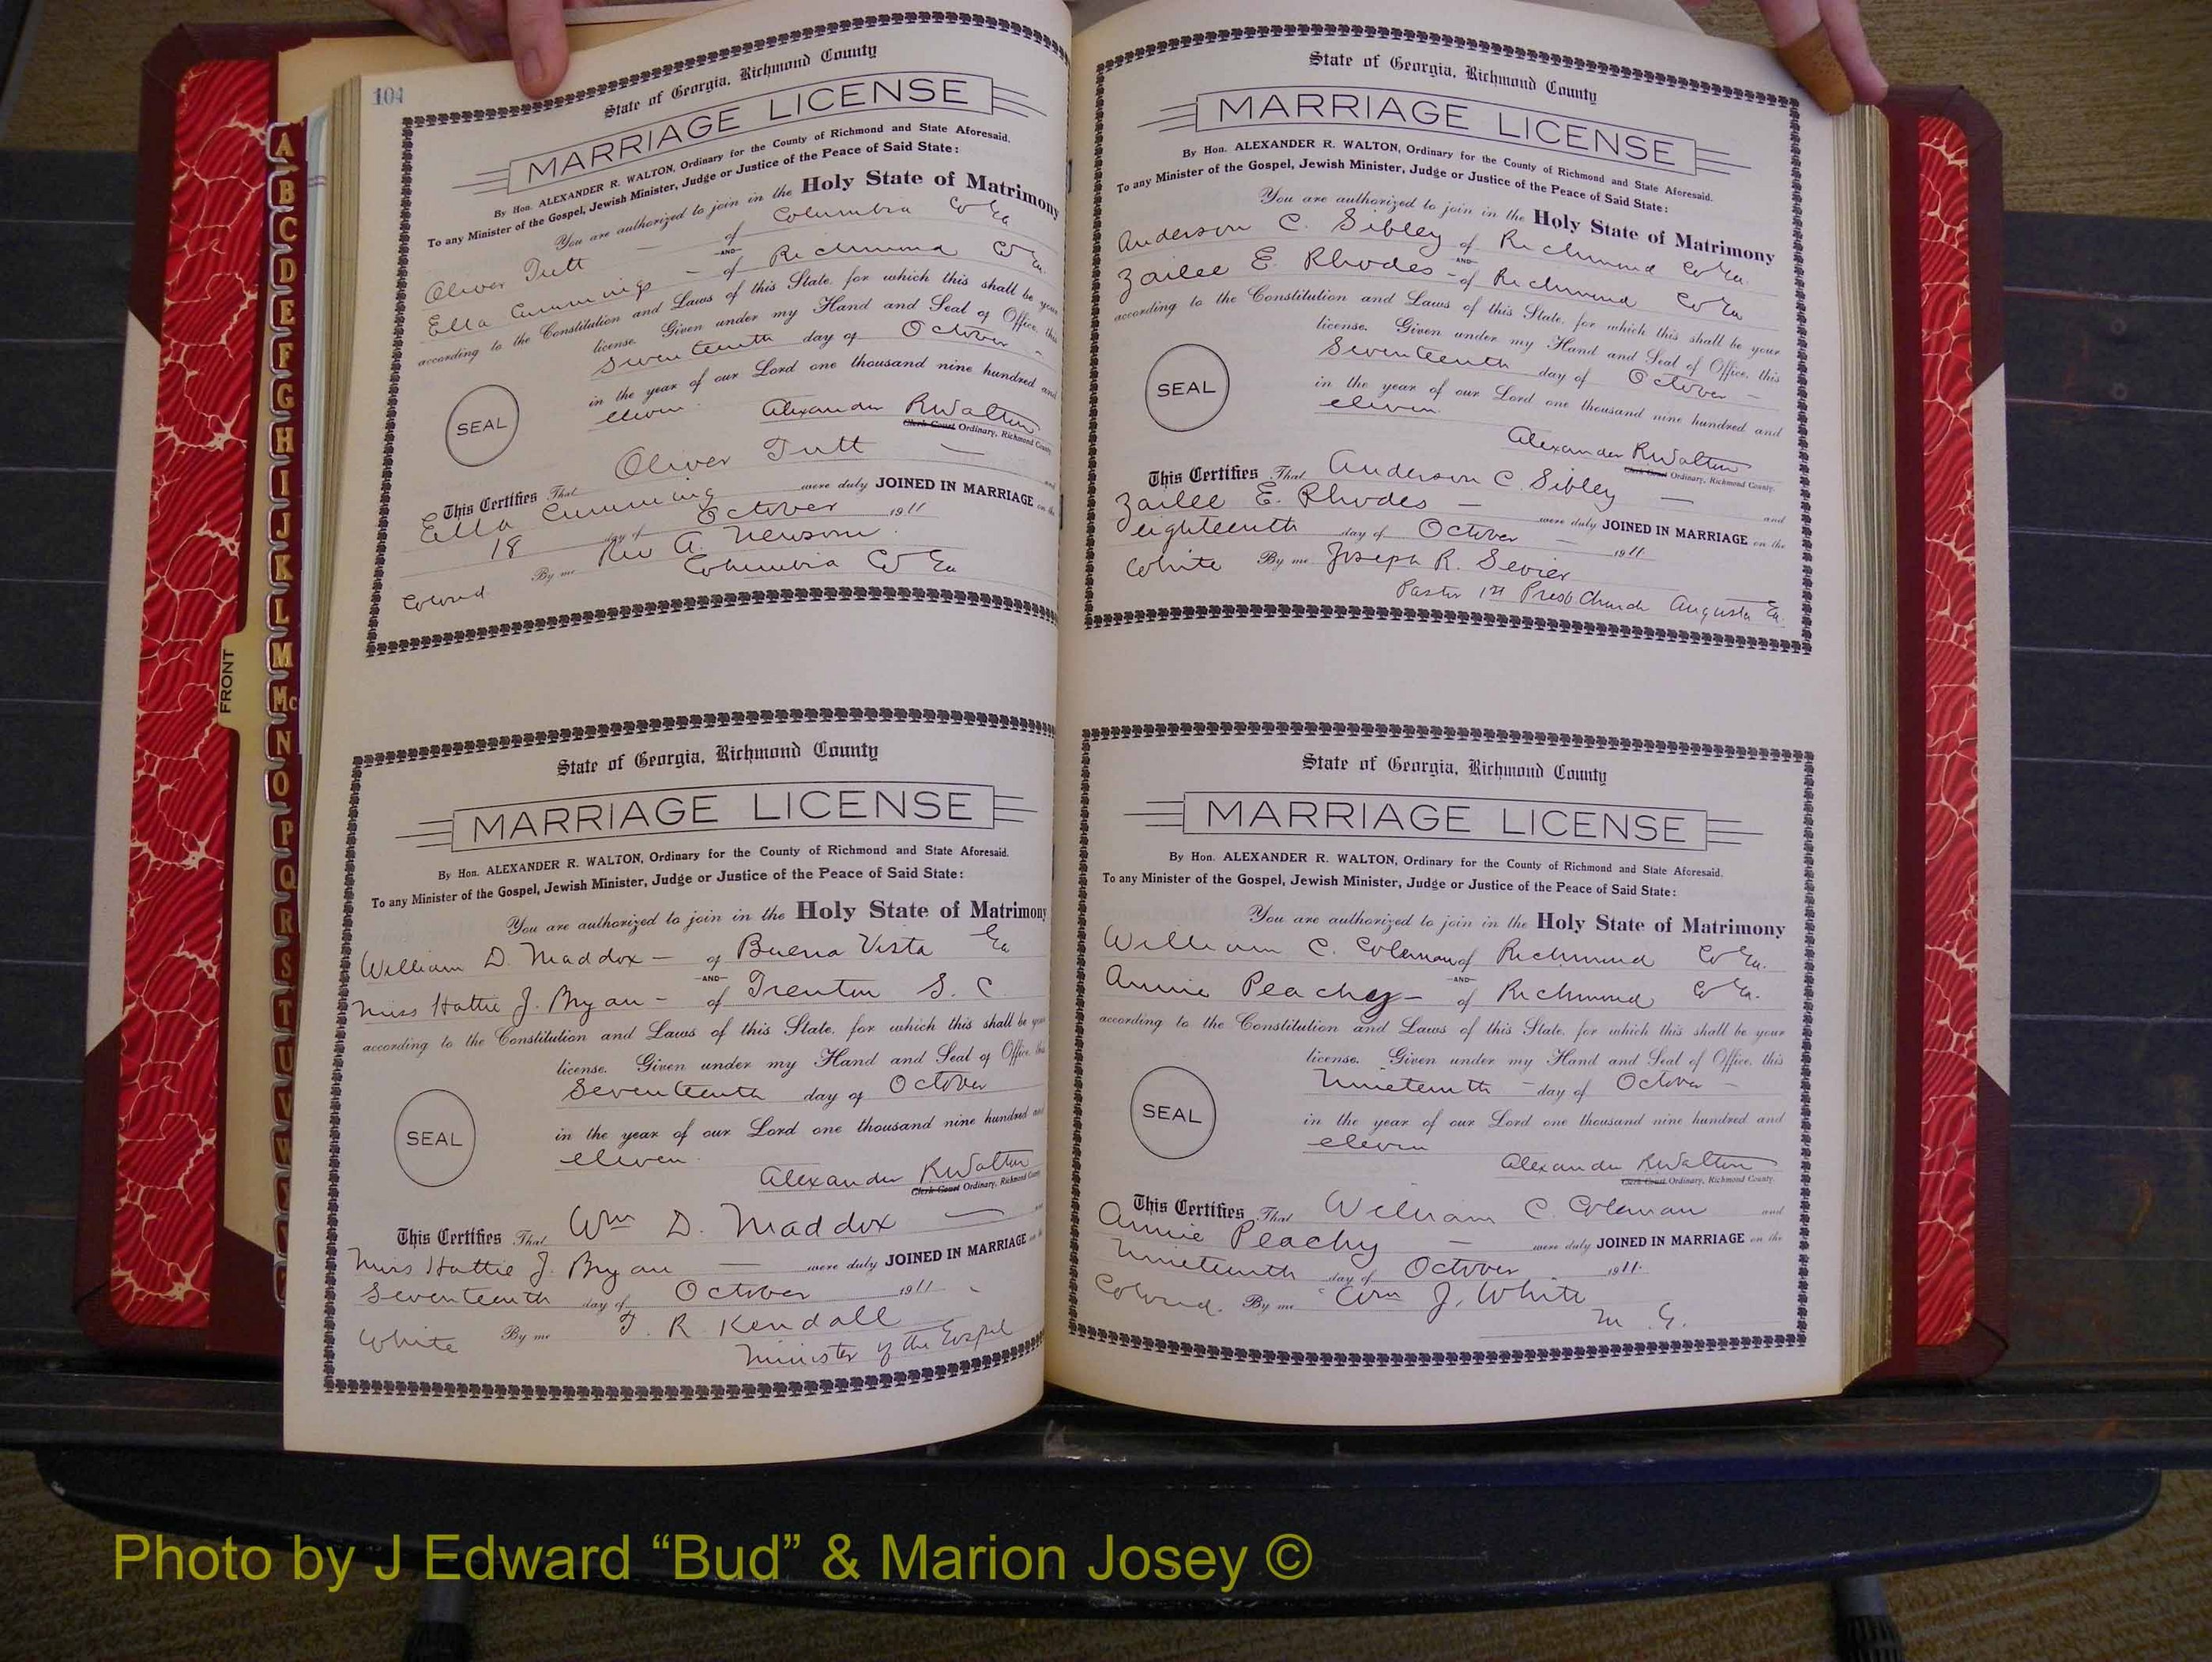 104
State of Georgia, Richmond County
MARRIAGE LICENSE
By Hon. ALEXANDER R. WALTON, Ordinary for the County of Richmond and State Aforesaid.
To any Minister of the Gospel, Jewish Minister, Judge or Justice of the Peace of Said State:
You are authorized to join in the Holy State of Matrimony
Oliver Tutt — of Columbia Co Ga
AND
Ella Cummings - of Richmond Co Ga.
according to the Constitution and Laws of this State, for which this shall be your
license. Given under my Hand and Seal of Office, this
Seventeenth day of October -
in the year of our Lord one thousand nine hundred and
eleven.
SEAL
Alexander R Walton
Clerk Court Ordinary, Richmond County
This Certifies That Oliver Tutt — and
Ella Cumming were duly JOINED IN MARRIAGE on the
18 day of October 1911
By me Rev A. Newsom.
Colored Columbia Co Ga
State of Georgia, Richmond County
MARRIAGE LICENSE
By Hon. ALEXANDER R. WALTON, Ordinary for the County of Richmond and State Aforesaid.
To any Minister of the Gospel, Jewish Minister, Judge or Justice of the Peace of Said State:
You are authorized to join in the Holy State of Matrimony
William D. Maddox — of Buena Vista Ga
AND
Miss Hattie J. Bryan - of Trenton S. C
according to the Constitution and Laws of this State, for which this shall be your
license. Given under my Hand and Seal of Office, this
Seventeenth day of October
in the year of our Lord one thousand nine hundred and
eleven.
SEAL
Alexander R Walton
Clerk Court Ordinary, Richmond County
This Certifies That Wm D. Maddox — and
Miss Hattie J. Bryan — were duly JOINED IN MARRIAGE on the
Seventeenth day of October 1911
White By me T. R Kendall
Minister of the Gospel
State of Georgia, Richmond County
MARRIAGE LICENSE
By Hon. ALEXANDER R. WALTON, Ordinary for the County of Richmond and State Aforesaid.
To any Minister of the Gospel, Jewish Minister, Judge or Justice of the Peace of Said State:
You are authorized to join in the Holy State of Matrimony
Anderson C. Sibley of Richmond Co Ga.
AND
Zailee E. Rhodes - of Richmond Co Ga
according to the Constitution and Laws of this State, for which this shall be your
license. Given under my Hand and Seal of Office, this
Seventeenth day of October —
in the year of our Lord one thousand nine hundred and
eleven.
SEAL
Alexander R Walton
Clerk Court Ordinary, Richmond County.
This Certifies That Anderson C. Sibley — and
Zailee E. Rhodes — were duly JOINED IN MARRIAGE on the
eighteenth day of October — 1911
White By me Joseph R. Sevier
Pastor 1st Presb Church Augusta Ga.
State of Georgia, Richmond County
MARRIAGE LICENSE
By Hon. ALEXANDER R. WALTON, Ordinary for the County of Richmond and State Aforesaid.
To any Minister of the Gospel, Jewish Minister, Judge or Justice of the Peace of Said State:
You are authorized to join in the Holy State of Matrimony
William C. Coleman of Richmond Co Ga.
AND
Annie Peachy - of Richmond Co Ga.
according to the Constitution and Laws of this State, for which this shall be your
license. Given under my Hand and Seal of Office, this
Nineteenth - day of October -
in the year of our Lord one thousand nine hundred and
eleven
SEAL
Alexander R Walton
Clerk Court Ordinary, Richmond County.
This Certifies That William C. Coleman and
Annie Peachy — were duly JOINED IN MARRIAGE on the
Nineteenth day of October 1911.
Colored. By me Wm J. White
M. G.
FRONT
A
B
C
D
E
F
G
H
I
J
K
L
M
Mc
N
O
P
Q
R
S
T
U
V
W
Photo by J Edward “Bud” & Marion Josey ©